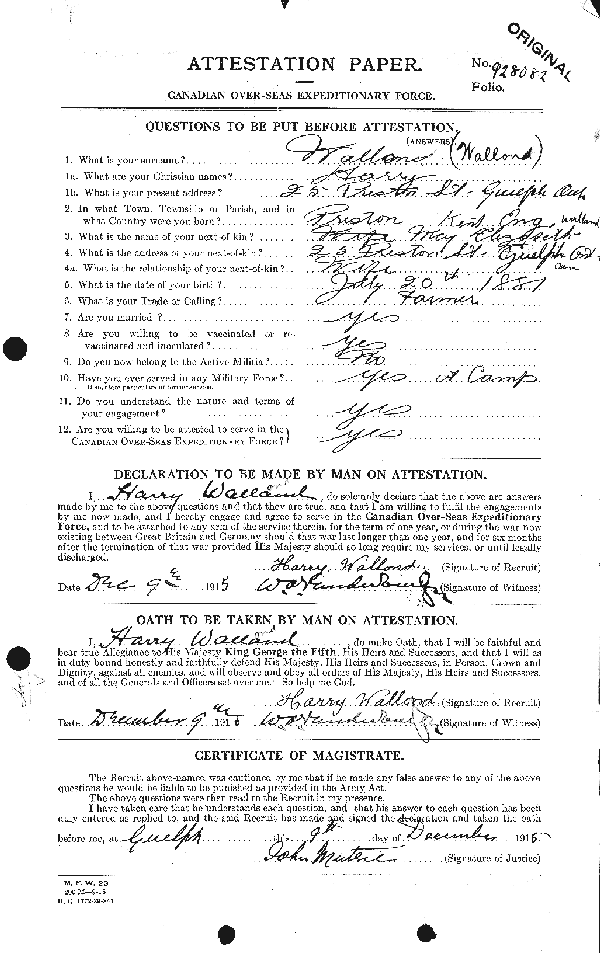 ORIGINAL
ATTESTATION PAPER.
No. 928082
Folio.
CANADIAN OVER-SEAS EXPEDITIONARY FORCE.
QUESTIONS TO BE PUT BEFORE ATTESTATION.
(ANSWERS)
1. What is your surname? Walland (Wallond)
1a. What are your Christian names? Harry
1b. What is your present address? 25 Preston St. Guelph Ont
2. In what Town, Township or Parish, and in
what Country were you born? Preston Kent Eng
3. What is the name of your next-of-kin? May Walland
4. What is the address of your next-of-kin? 25 Preston St. Guelph Ont
Can
4a. What is the relationship of your next-of-kin? Wife
5. What is the date of your birth? July 20th 1881
6. What is your Trade or Calling? Farmer
7. Are you married? yes
8. Are you willing to be vaccinated or re-
vaccinated and inoculated? yes
9. Do you now belong to the Active Militia? No
10. Have you ever served in any Military Force? yes A Camp
If so, state particulars of former service.
11. Do you understand the nature and terms of
your engagement? yes
12. Are you willing to be attested to serve in the
CANADIAN OVER-SEAS EXPEDITIONARY FORCE? yes
DECLARATION TO BE MADE BY MAN ON ATTESTATION.
I, Harry Walland, do solemnly declare that the above are answers
made by me to the above questions and that they are true, and that I am willing to fulfil the engagements
by me now made, and I hereby engage and agree to serve in the Canadian Over-Seas Expeditionary
Force, and to be attached to any arm of the service therein, for the term of one year, or during the war now
existing between Great Britain and Germany should that war last longer than one year, and for six months
after the termination of that war provided His Majesty should so long require my services, or until legally
discharged.
Harry Wallond (Signature of Recruit)
Date Dec 9th 1915 (Signature of Witness)
OATH TO BE TAKEN BY MAN ON ATTESTATION.
I, Harry Walland, do make Oath, that I will be faithful and
bear true Allegiance to His Majesty King George the Fifth, His Heirs and Successors, and that I will as
in duty bound honestly and faithfully defend His Majesty, His Heirs and Successors, in Person, Crown and
Dignity, against all enemies, and will observe and obey all orders of His Majesty, His Heirs and Successors,
and of all the Generals and Officers set over me. So help me God.
Harry Wallond (Signature of Recruit)
Date December 9th 1915 (Signature of Witness)
CERTIFICATE OF MAGISTRATE.
The Recruit above-named was cautioned by me that if he made any false answer to any of the above
questions he would be liable to be punished as provided in the Army Act.
The above questions were then read to the Recruit in my presence.
I have taken care that he understands each question, and that his answer to each question has been
duly entered as replied to, and the said Recruit has made and signed the declaration and taken the oath
before me, at Guelph this 9th day of December 1915
John (Signature of Justice)
M. F. W. 23